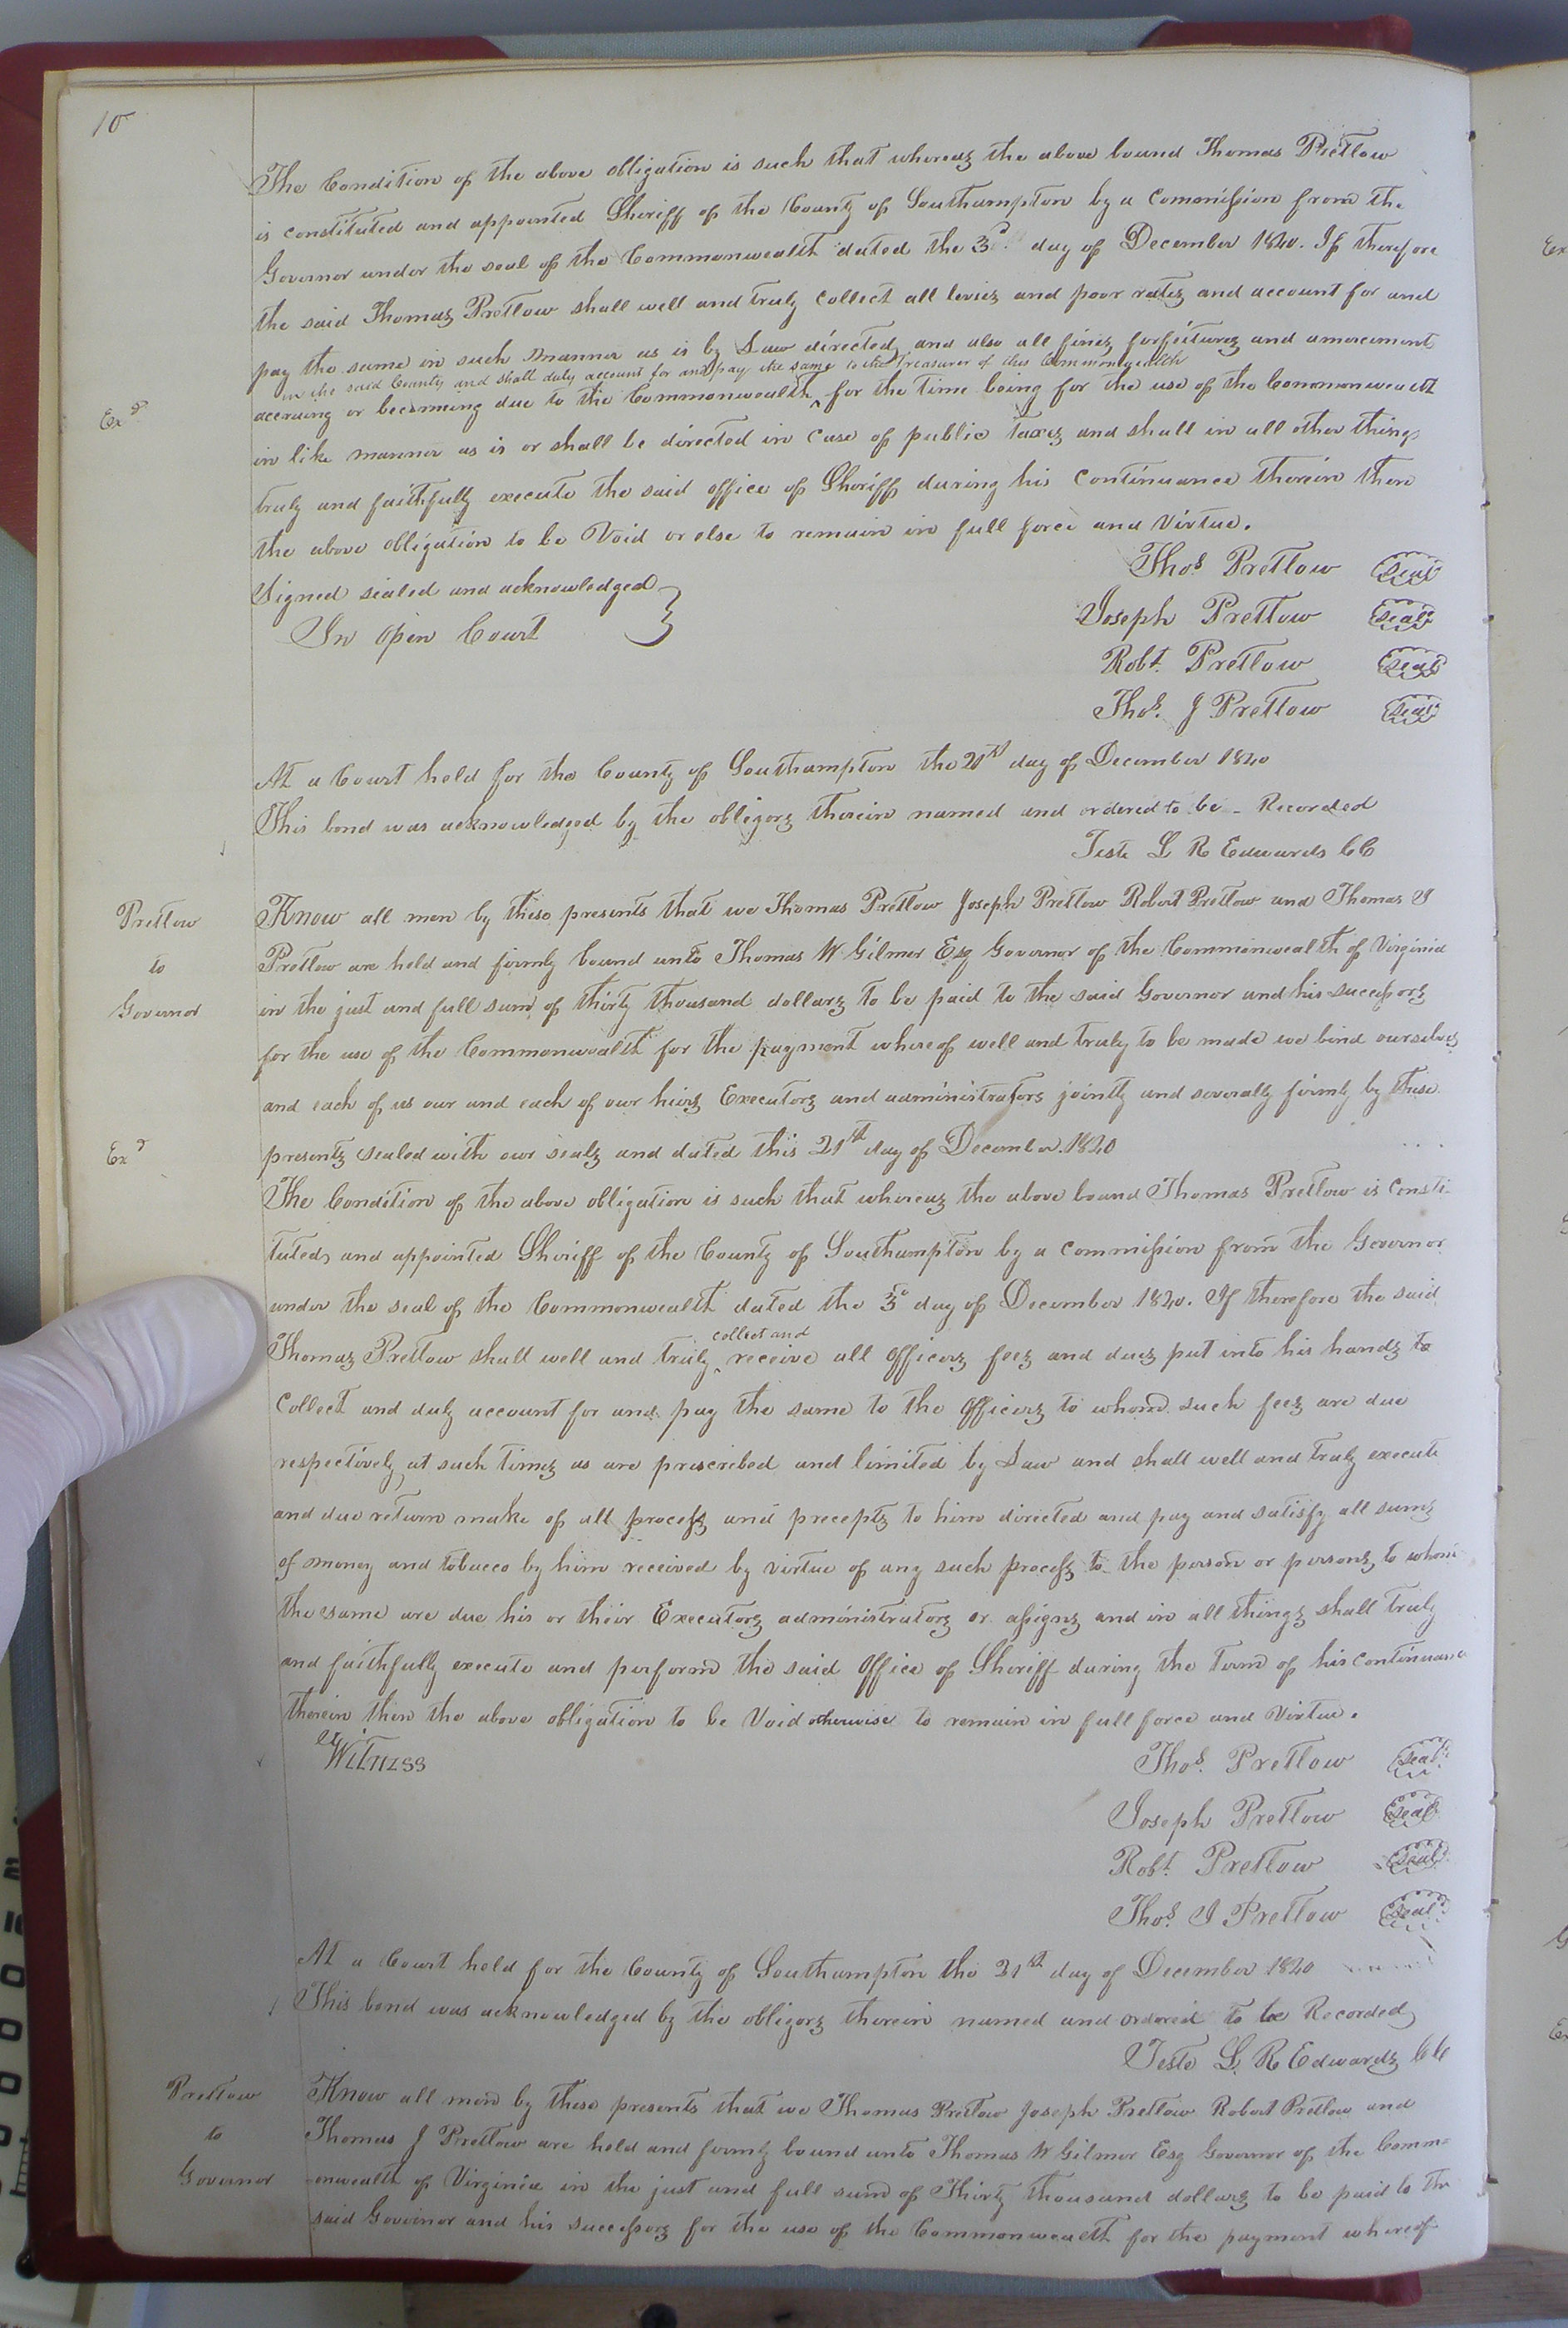 10
The Condition of the above obligation is such that whereas the above bound Thomas Pretlow
is constituted and appointed Sheriff of the County of Southampton by a Commission from the
Governor under the seal of the Commonwealth dated the 3d. day of December 1840. If therefore
the said Thomas Pretlow shall well and truly collect all levies and poor rates and account for and
pay the same in such manner as is by Law directed and also all fines forfeitures and amercement
in the said County and shall duly account for and pay the same to the Treasurer of this Commonwealth
Exd
accruing or becoming due to the Commonwealth ^ for the time being for the use of the Commonwealth
in like manner as is or shall be directed in case of public taxes and shall in all other things
truly and faithfully execute the said office of Sheriff during his Continuance therein then
the above obligation to be Void or else to remain in full force and Virtue.
Signed sealed and acknowledged }
In Open Court
Thos. Pretlow seal
Joseph Pretlow seal
Robt. Pretlow seal
Thos. J Pretlow seal
At a Court held for the County of Southampton the 21st day of December 1840
This bond was acknowledged by the obligors therein named and ordered to be - Recorded
Teste L R Edwards CC
Pretlow
to
Governor
Know all men by these presents that we Thomas Pretlow Joseph Pretlow Robert Pretlow and Thomas J
Pretlow are held and firmly bound unto Thomas W Gilmer Esq Governor of the Commonwealth of Virginia
in the just and full sum of thirty thousand dollars to be paid to the said Governor and his successors
for the use of the Commonwealth for the payment whereof well and truly to be made we bind ourselves
and each of us our and each of our heirs Executors and administrators jointly and severally firmly by these
Exd
presents sealed with our seals and dated this 21st day of December 1840
The Condition of the above obligation is such that whereas the above bound Thomas Pretlow is Consti-
tuted and appointed Sheriff of the County of Southampton by a Commission from the Governor
under the seal of the Commonwealth dated the 3d day of December 1840. If therefore the said
collect and
Thomas Pretlow shall well and truly ^ receive all Officers fees and dues put into his hands to
Collect and duly account for and pay the same to the Officers to whom such fees are due
respectively at such times as are prescribed and limited by Law and shall well and truly execute
and due return make of all process and precepts to him directed and pay and satisfy all sums
of money and tobacco by him received by virtue of any such process to the person or persons to whom
the same are due his or their Executors administrators or assigns and in all things shall truly
and faithfully execute and perform the said Office of Sheriff during the term of his Continuance
therein then the above obligation to be Void otherwise to remain in full force and Virtue.
Witness
Thos. Pretlow seal
Joseph Pretlow seal
Robt. Pretlow seal
Thos. J Pretlow seal
At a Court held for the County of Southampton the 21st day of December 1840
This bond was acknowledged by the obligors therein named and ordered to be Recorded
Teste L. R Edwards CC
Pretlow
to
Governor
Know all men by these presents that we Thomas Pretlow Joseph Pretlow Robert Pretlow and
Thomas J Pretlow are held and firmly bound unto Thomas W Gilmer Esq Governor of the Comm=
onwealth of Virginia in the just and full sum of Thirty thousand dollars to be paid to the
said Governor and his successors for the use of the Commonwealth for the payment whereof